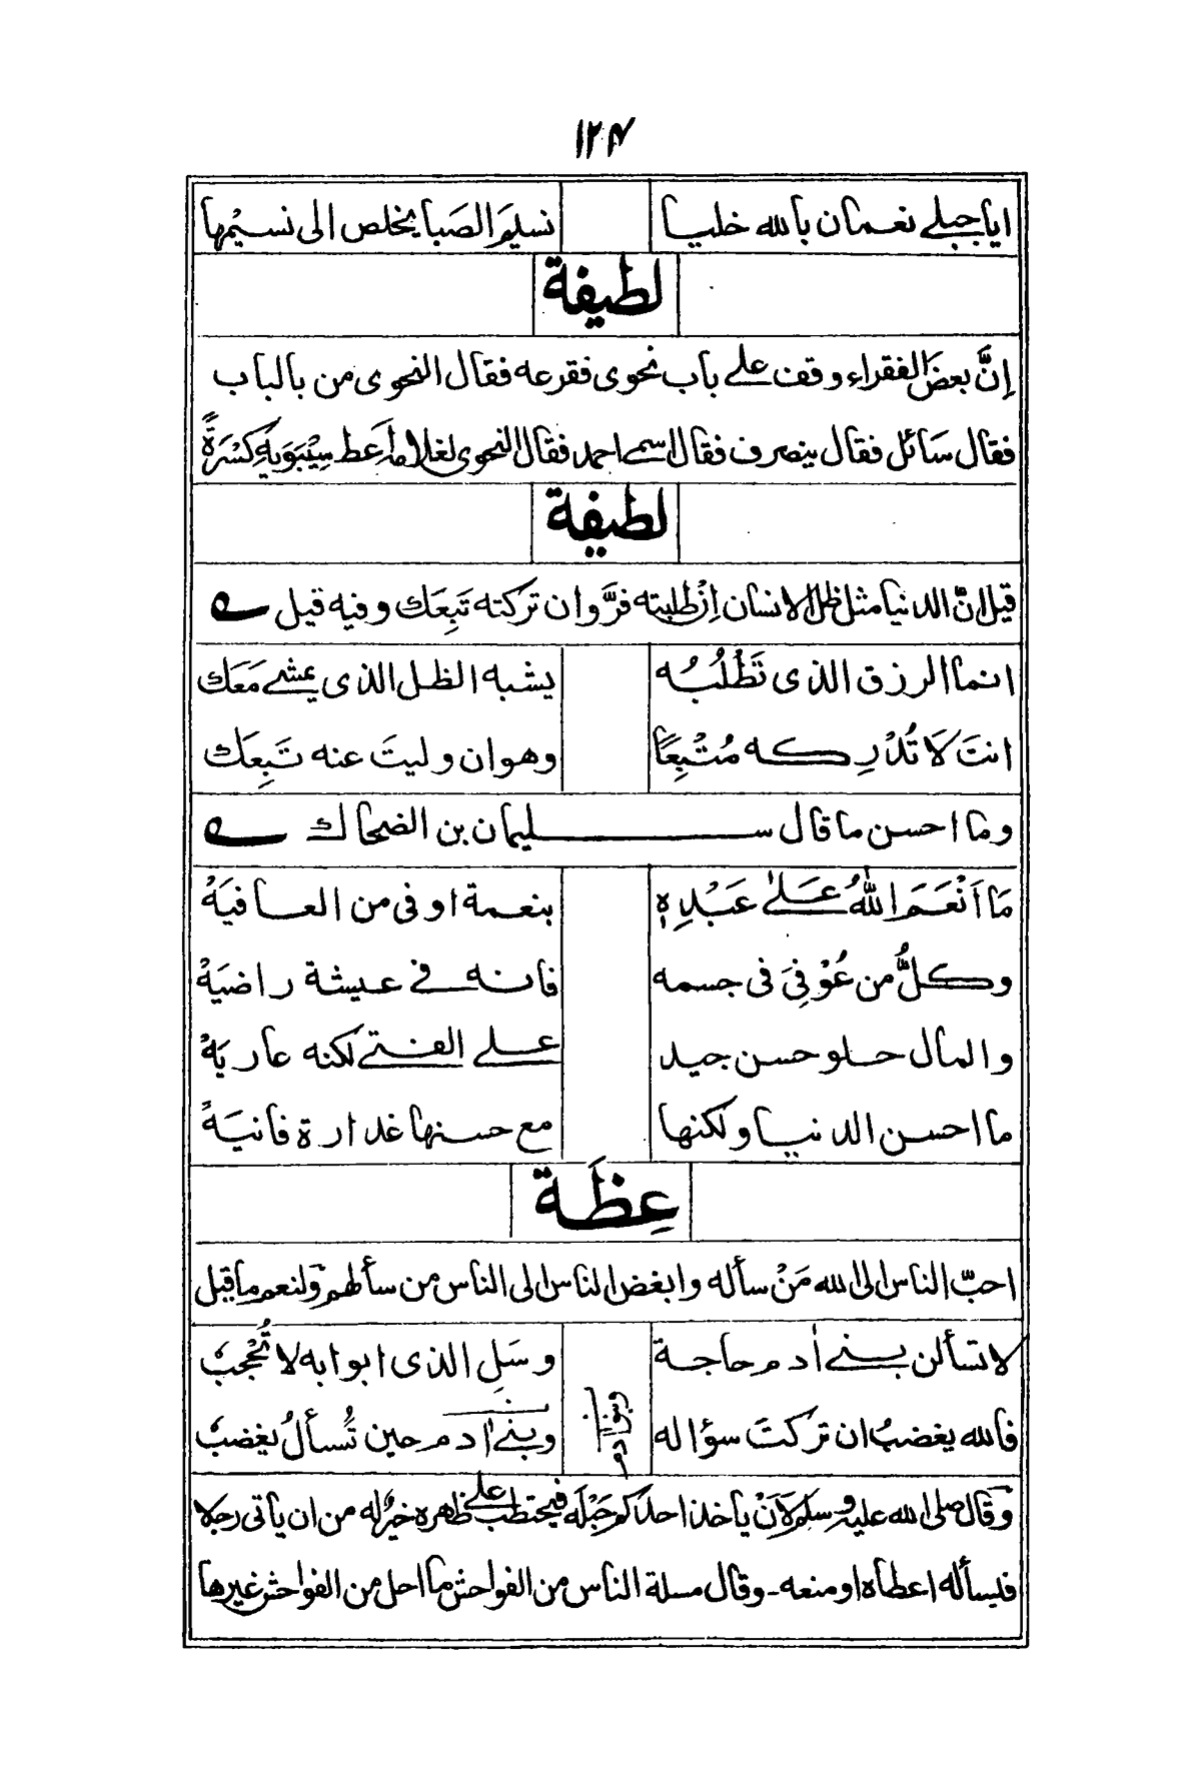 ١٢٤
ايا جبلے نعمان بالله خليا نسيم الصَبا يخلص الى نسيْمها
لطيفة
اِنَّ بعضَ الفقراء وقف علے باب نحوى فقرعه فقال النحوى من بالباب
فقال سَائل فقال ينصرف فقال اسمے احمد فقال النحوى لغلامه اَعط سِيْبَوَيْهِ كَسْرَةً
لطيفة
قيل انّ الدنيا مثل ظل الانسان اِنْ طلبته فرَّ وان تركته تَبِعَك وفيه قيل ؎
انما الرزق الذى تَطْلُبُه يشبه الظل الذى يمشے مَعَك
انتَ لَا تُدْرِكه مُتْبِعًا وهو ان وليتَ عنه تَبِعَك
وما احسن ما قال سليمان بن الضحاك ؎
مَا اَنْعَمَ اللهُ عَلےٰ عَبْدِهٖ بنعمة اوفى من العافيَهْ
وكلُّ من عُوْفِىَ فى جسمه فانه فے عيشة راضيَهْ
والمال حلو حسن جيد علے الفتے لكنه عاريَهْ
ما احسن الدنيا ولكنها مع حسنها غدارة فانيَهْ
عِظَة
احبّ الناس الى الله مَنْ سأله وابغض الناس الى الناس من سألهم ولنعم ما قيل
لا تسألن بنے اٰدم حاجة وسَلِ الذى ابوابه لا تُحْجَبُ
فالله يغضبُ ان تركتَ سؤاله وبنے اٰدم حين تُسألُ يغضبُ
وبنو اٰدم
وقال صلى الله عليه وسلم لَاَنْ يأخذ احدكم حَبْلَه فيحتطب علے ظهره خيرٌ له من ان يأتى رجلا
فيسأله اعطاه او منعه۔ وقال مسلة الناس من الفواحش ما احل من الفواحش غيرها